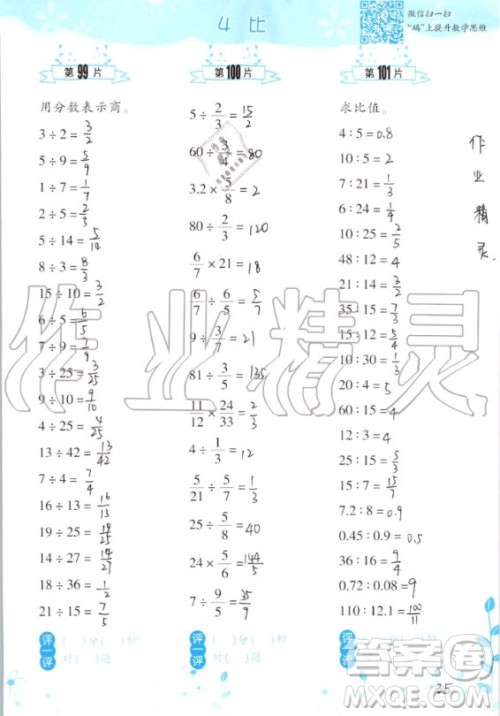 微信扫一扫
“码”上提升数学思维
4 比
第99片
用分数表示商。
3÷2=3/2
5÷9=5/9
1÷7=1/7
2÷5=2/5
5÷14=5/14
8÷3=8/3
15÷10=3/2
6÷5=6/5
7÷9=7/9
3÷25=3/25
9÷10=9/10
4÷25=4/25
13÷42=13/42
7÷4=7/4
16÷13=16/13
19÷25=19/25
14÷27=14/27
18÷36=1/2
21÷15=7/5
评一评
( )分( )秒
对( )题
第100片
5÷2/3=15/2
60÷3/4=80
3.2×5/8=2
80÷2/3=120
6/7×21=18
7÷1/3=21
81÷3/5=135
11/12×24/33=2/3
4÷1/3=12
5/21÷5/7=1/3
25÷5/8=40
24×6/5=144/5
评一评
( )分( )秒
对( )题
第101片
求比值。
4:5=0.8
10:5=2
7:21=1/3
6:24=1/4
10:25=2/5
48:12=4
21:14=3/2
35:15=7/3
15:12=5/4
10:30=1/3
20:4=5
60:15=4
25:15=5/3
15:7=15/7
7.2:8=0.9
0.45:0.9=0.5
36:16=9/4
0.72:0.08=9
110:12.1=100/11
作业精灵
作业精灵
答案圈
MXQE.COM
25